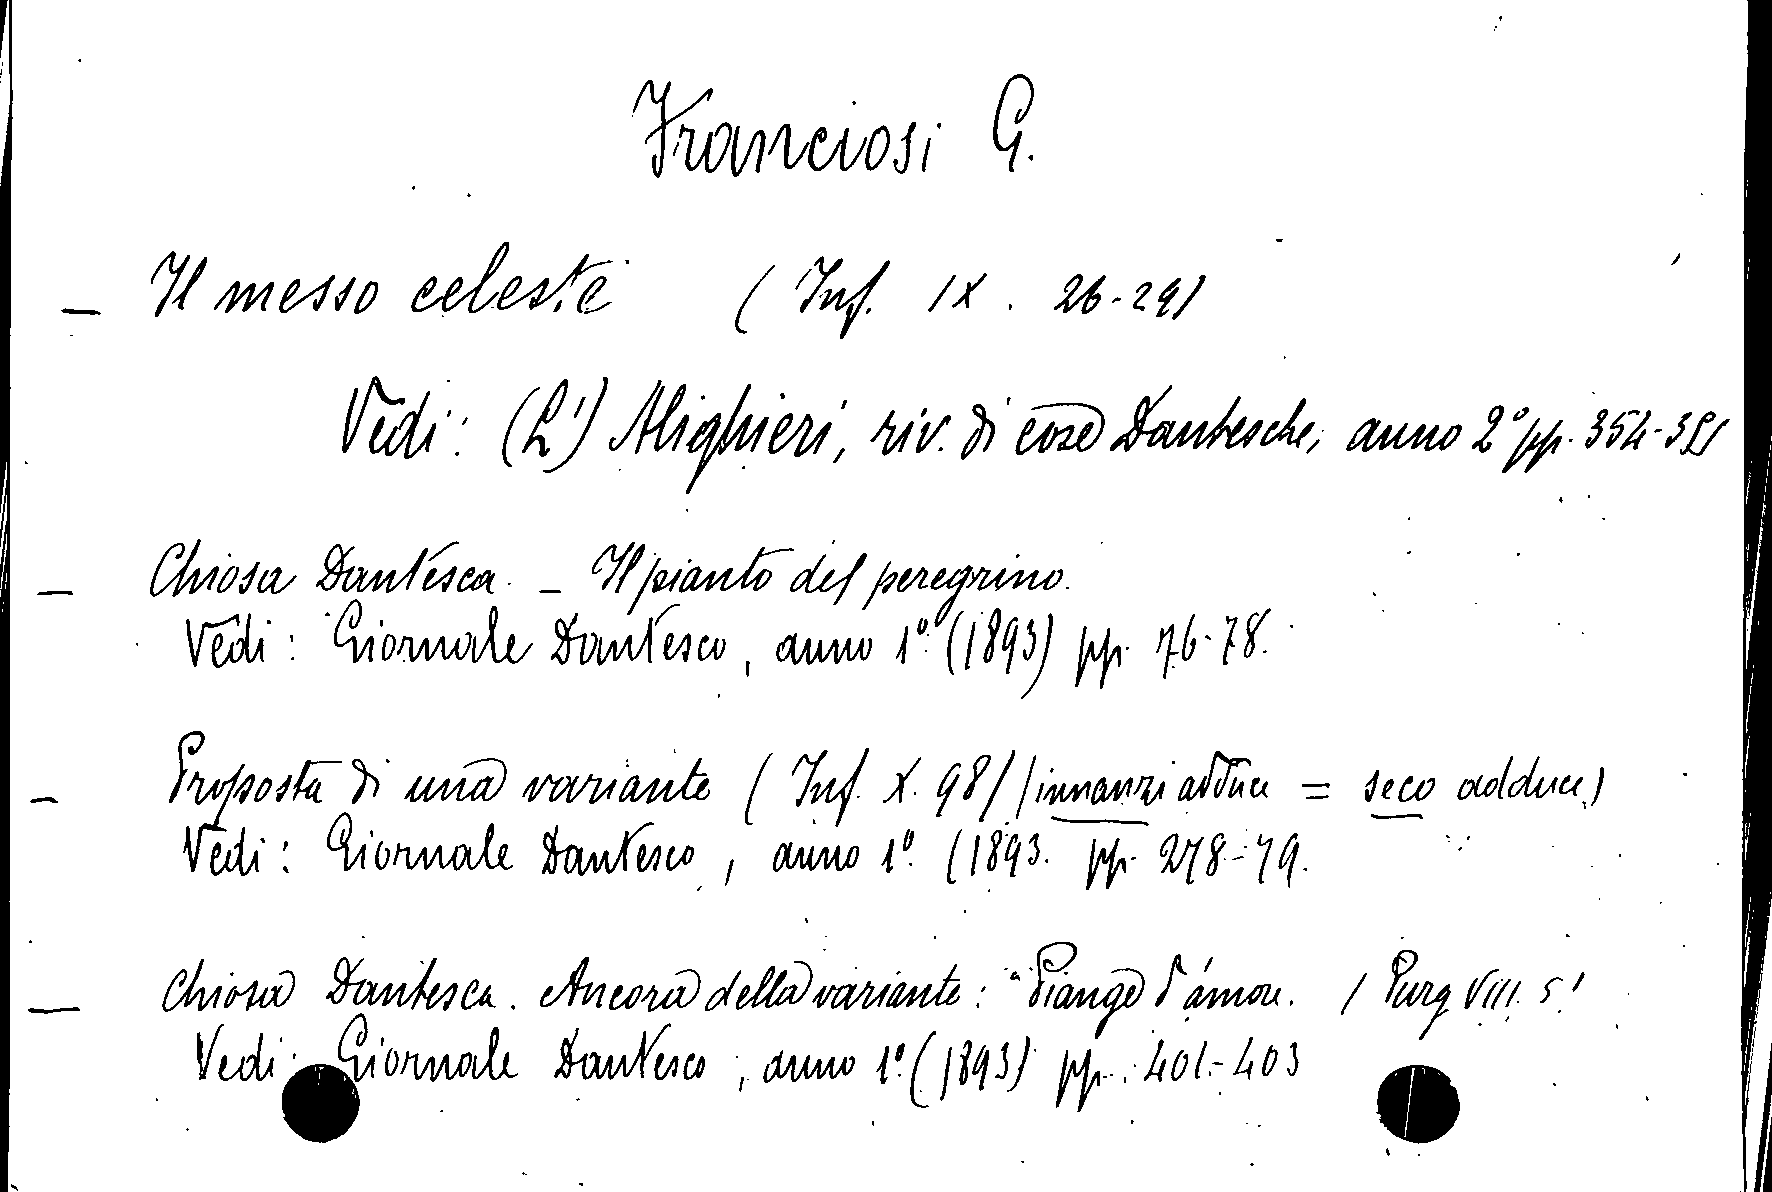 Franciosi G.
— Il messo celeste (Inf. IX. 26-29)
Vedi: (L') Alighieri, riv. di cose Dantesche, anno 2° pp. 354-
— Chiosa Dantesca. – Il pianto del peregrino.
Vedi: Giornale Dantesco, anno 1.° (1893) pp. 76-78.
— Proposta di una variante (Inf. X. 98) (innanzi adduce = seco adduce)
Vedi: Giornale Dantesco, anno 1°. (1893. pp. 278-79.
— Chiosa Dantesca. Ancora della variante: "Piange d'amore. (Purg VIII. 5)
Vedi: Giornale Dantesco, anno 1.° (1893) pp. 401-403